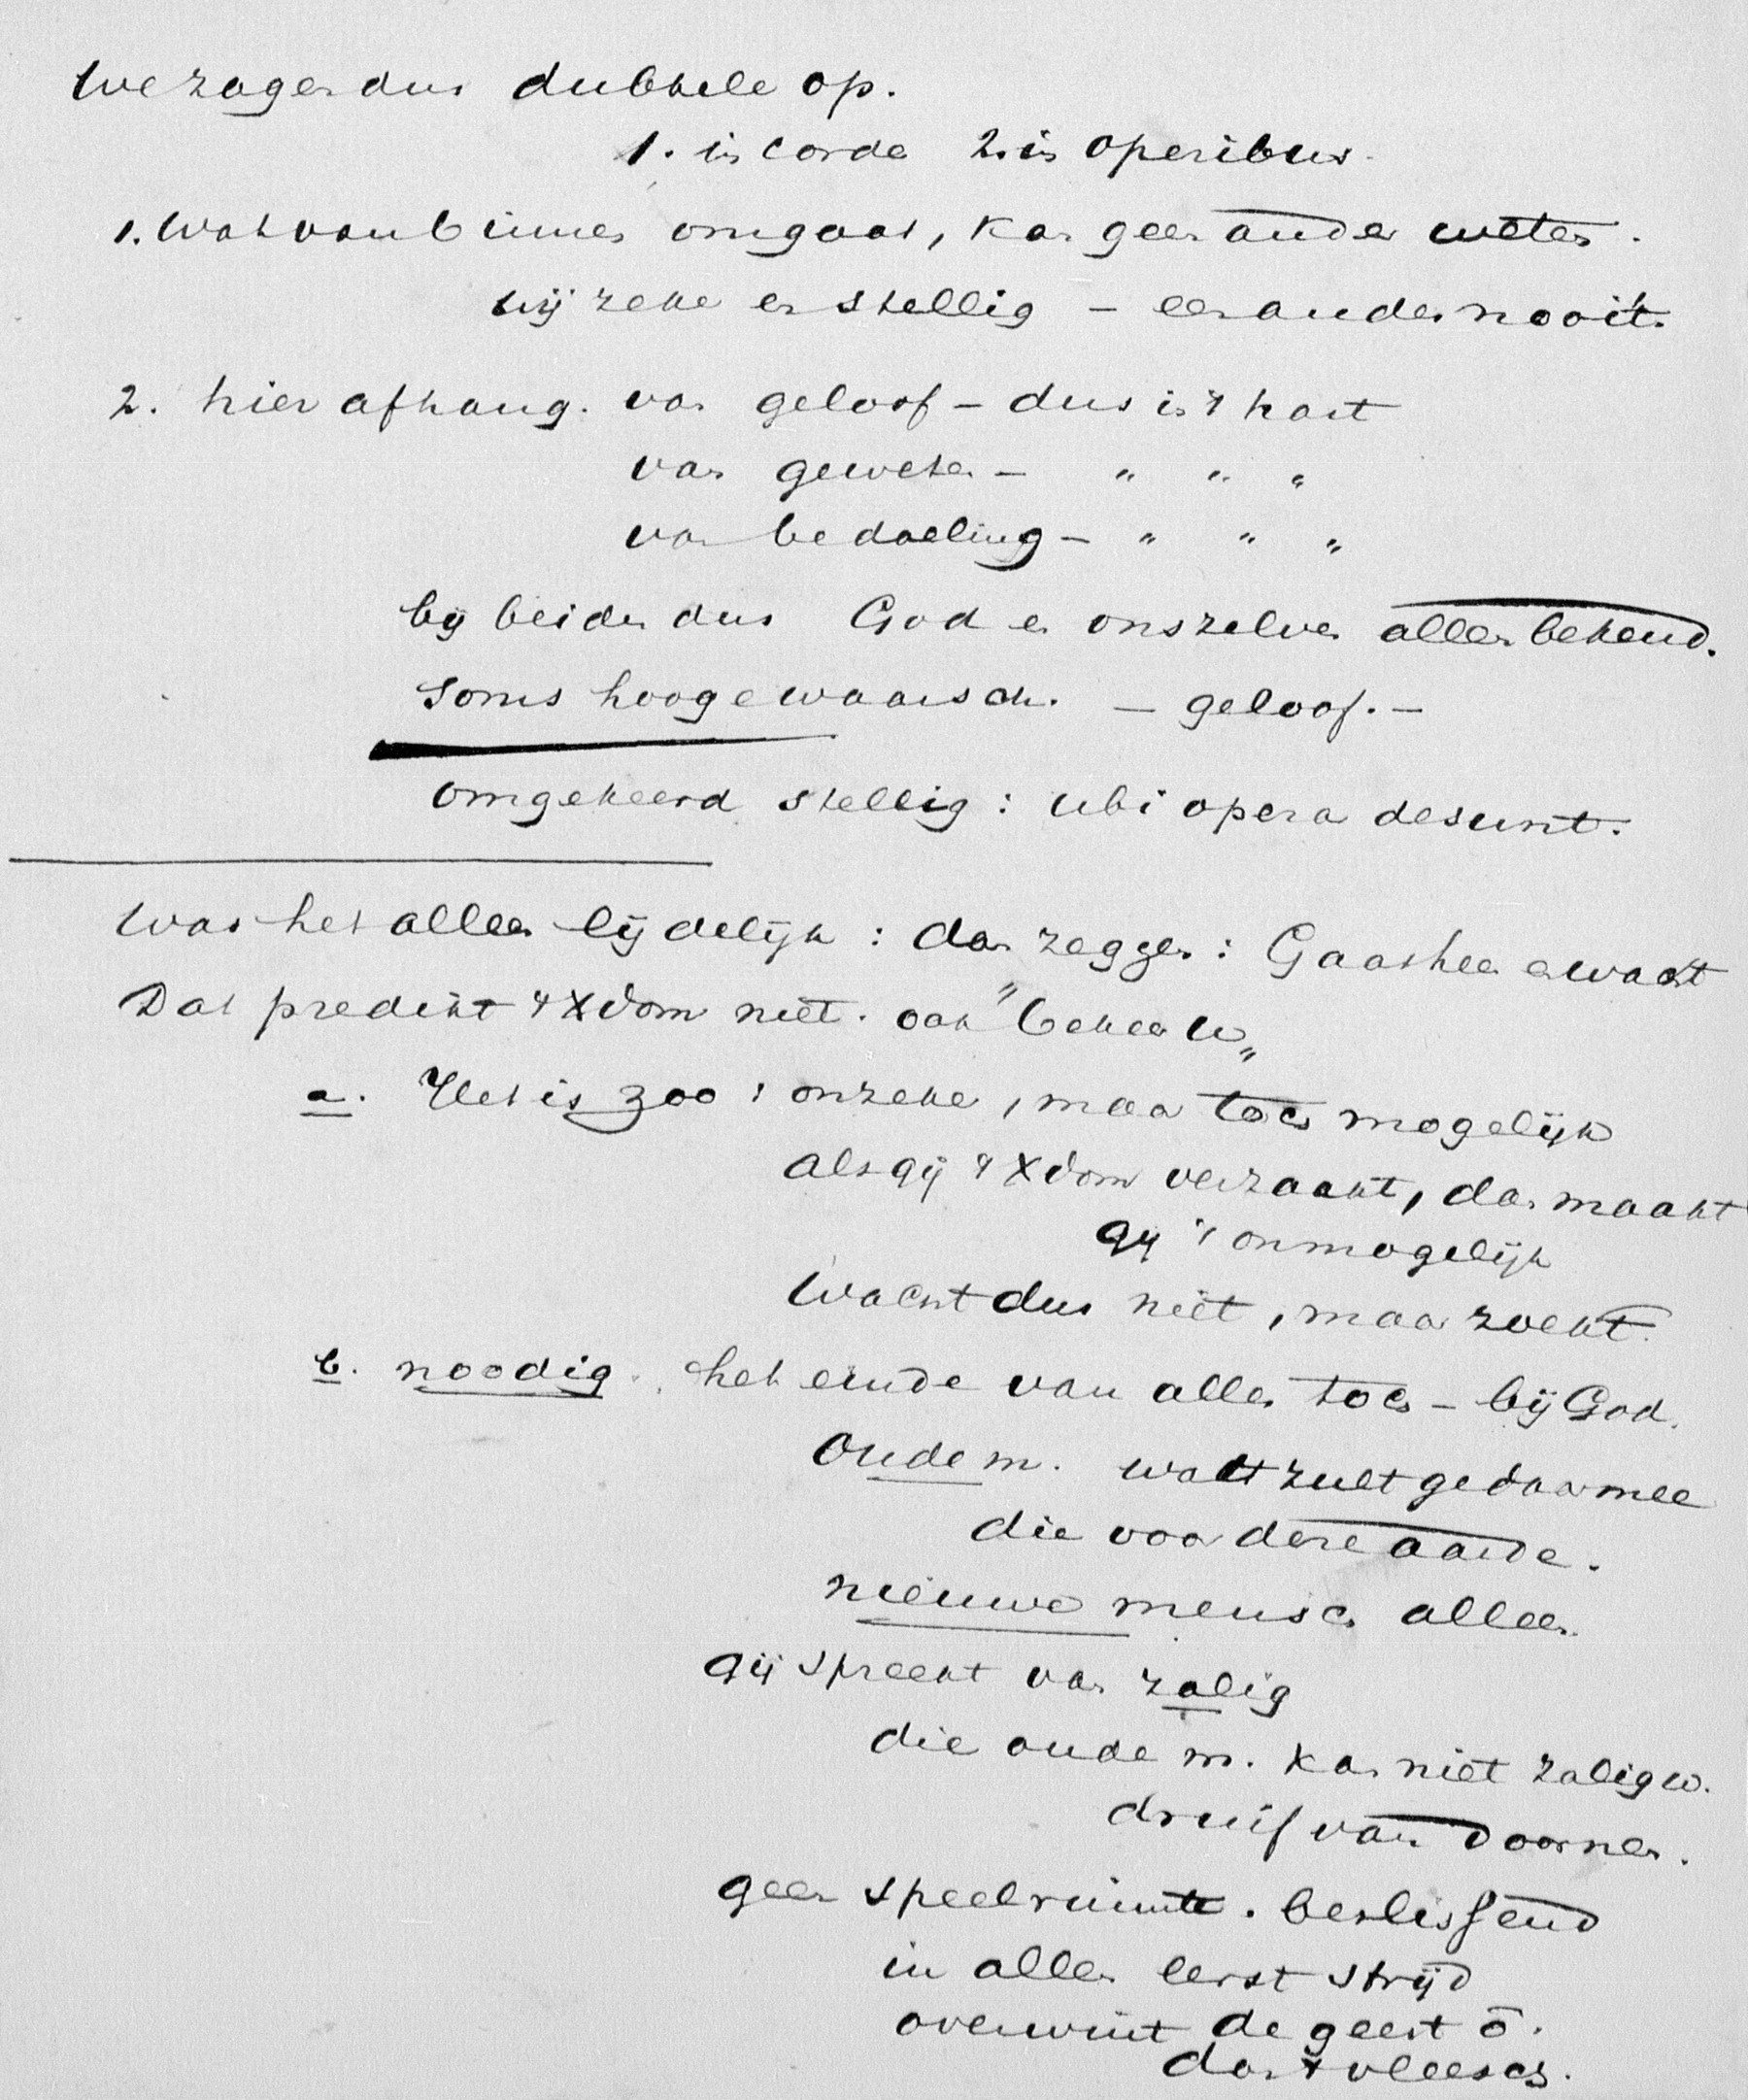 We zagen dus dubbele op.
1. in corde 2. in operibus.
1. Wat van binnen omgaat, kan geen ander weten.
wij zeker en stellig – een ander nooit.
2. hier afhang. van geloof – dus in 't hart
van geweten – " " "
van bedoeling – " " "
bij beiden dus God en onszelven alleen bekend.
Soms hooge waarsch. – geloof. –
omgekeerd stellig: ubi opera desunt.
Was het alleen lijdelijk: dan zeggen: Gaat heen en wacht
Dat predikt 't Xdom niet. ook "bekeer u"
a. Het is zoo: onzeker, maar toch mogelijk
als gij 't Xdom verzaakt, dan maakt
gij 't onmogelijk
Wacht dus niet, maar zoekt.
b. noodig. het einde van alles toch – bij God.
Oude m. wat zult ge daarmee
die voor deze aarde.
nieuwe mensch alleen.
gij spreekt van zalig
die oude m. kan niet zalig w.
druif van doornen.
geen speelruimte. beslissend
in allen eerst strijd
overwint de geest õ.
dan 't vleesch.